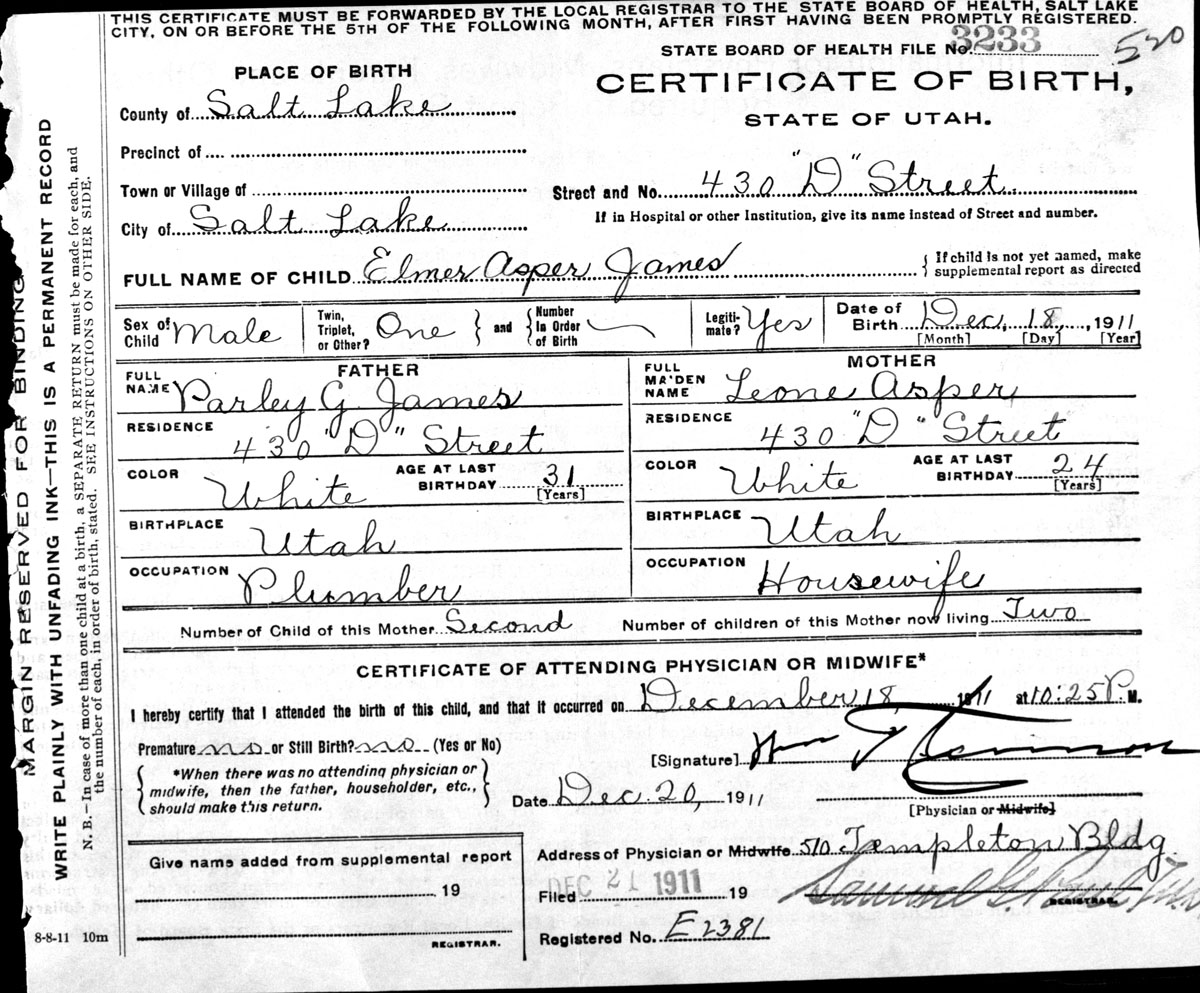 THIS CERTIFICATE MUST BE FORWARDED BY THE LOCAL REGISTRAR TO THE STATE BOARD OF HEALTH, SALT LAKE
CITY, ON OR BEFORE THE 5TH OF THE FOLLOWING MONTH, AFTER FIRST HAVING BEEN PROMPTLY REGISTERED.
STATE BOARD OF HEALTH FILE No. 3233
520
PLACE OF BIRTH
CERTIFICATE OF BIRTH,
STATE OF UTAH.
County of Salt Lake
Precinct of
Town or Village of
Street and No. 430 "D" Street
City of Salt Lake
If in Hospital or other Institution, give its name instead of Street and number.
FULL NAME OF CHILD Elmer Asper James
{ If child is not yet named, make
supplemental report as directed
Sex of Child Male
Twin, Triplet, or Other? One } and { Number In Order of Birth
Legiti-mate? Yes
Date of Birth Dec. 18, 1911
[Month] [Day] [Year]
FATHER
FULL NAME Parley G James
RESIDENCE
430 "D" Street
COLOR White
AGE AT LAST BIRTHDAY 31
[Years]
BIRTHPLACE Utah
OCCUPATION Plumber
MOTHER
FULL MAIDEN NAME Leone Asper
RESIDENCE
430 "D" Street
COLOR White
AGE AT LAST BIRTHDAY 24
[Years]
BIRTHPLACE Utah
OCCUPATION Housewife
Number of Child of this Mother Second Number of children of this Mother now living Two
CERTIFICATE OF ATTENDING PHYSICIAN OR MIDWIFE*
I hereby certify that I attended the birth of this child, and that it occurred on December 18, 1911 at 10:25 P. M.
Premature no or Still Birth? no (Yes or No)
[Signature]
{ *When there was no attending physician or
midwife, then the father, householder, etc.,
should make this return. }
Date Dec. 20, 1911
[Physician or Midwife]
Give name added from supplemental report
19
REGISTRAR.
Address of Physician or Midwife 510 Templeton Bldg.
Filed DEC 21 1911 19
REGISTRAR.
Registered No. E2381
8-8-11 10m
MARGIN RESERVED FOR BINDING
WRITE PLAINLY WITH UNFADING INK—THIS IS A PERMANENT RECORD
N. B.—In case of more than one child at a birth, a SEPARATE RETURN must be made for each, and
the number of each, in order of birth, stated. SEE INSTRUCTIONS ON OTHER SIDE.